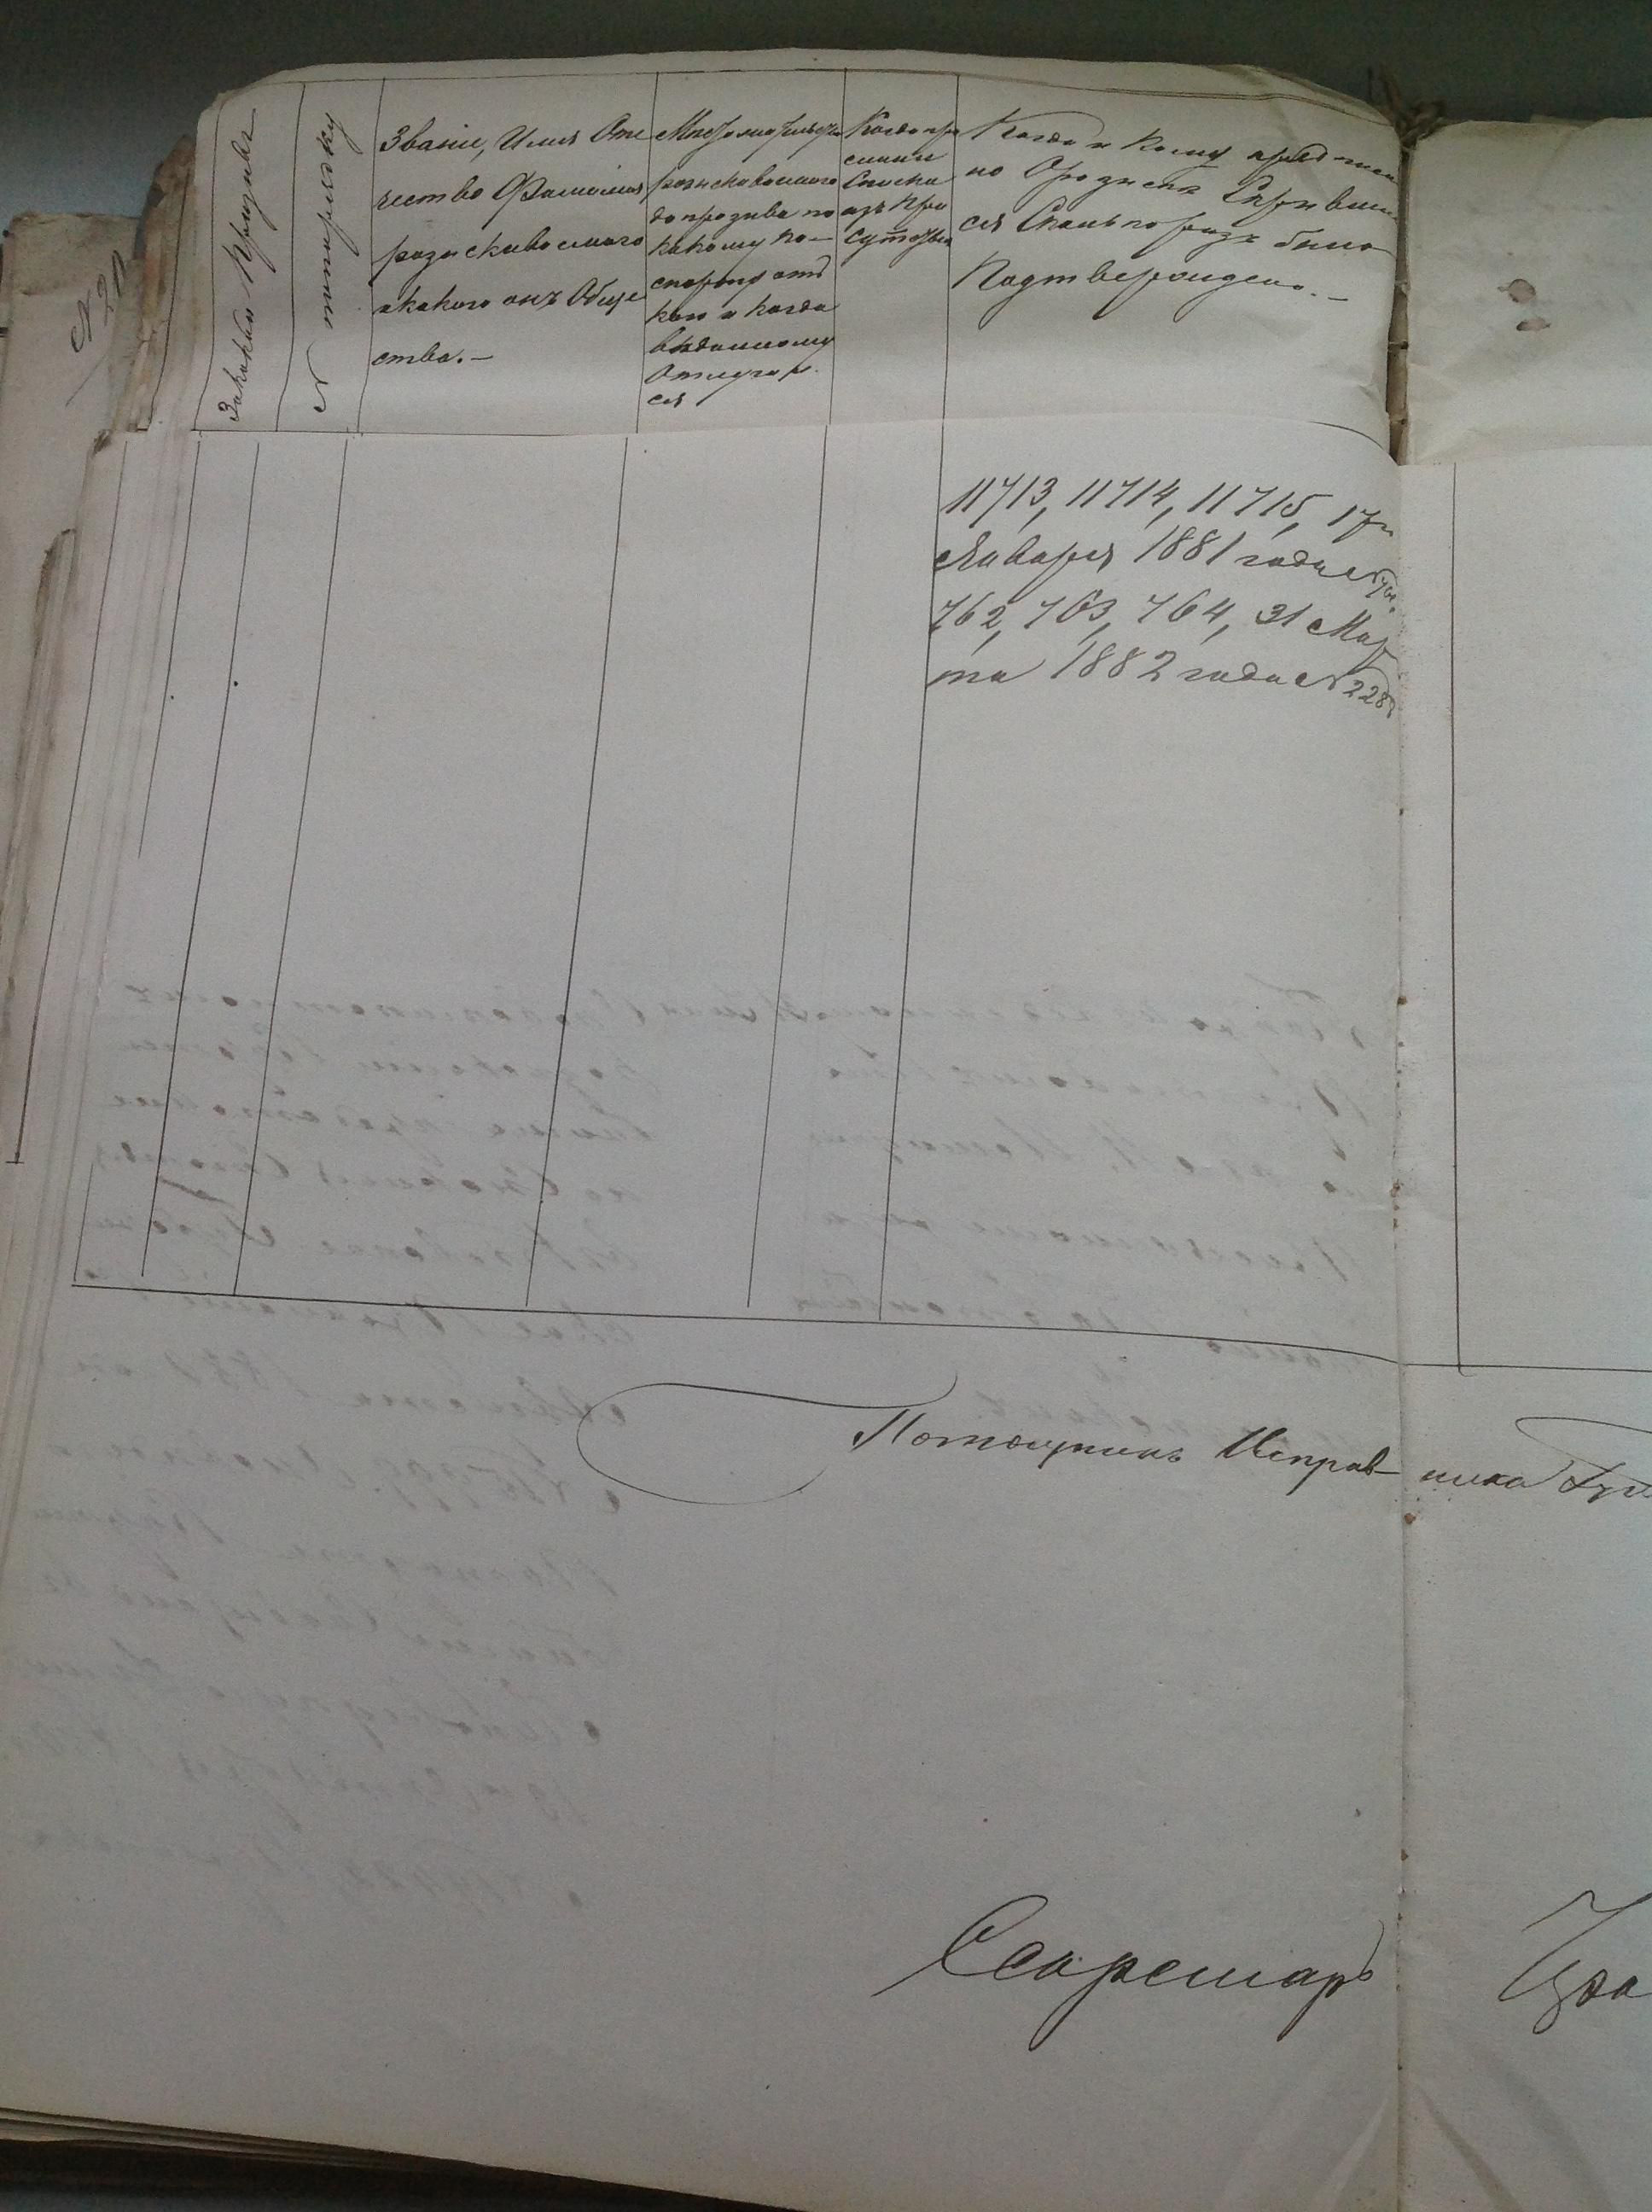 № 30
За какой Призывъ
№ поотрядку
Званіе, Имя Оте
чество Фамилія
разыскиваемаго
и какого онъ Обще
ства.—
Мѣстожительство
разыскиваемаго
до призыва по
какому па-
спорту отъ
кого и когда
выданному
Отлучал
ся
Когда при
сланы
Списки
изъ При
сутствія
Когда и Кому предписа
но О розыскѣ Скрывша
ся Сколько разъ было
Подтверждено.—
11713, 11714, 11715, 17го
Января 1881 года №
762, 763, 764, 31 Мар
та 1882 года №
Помощникъ Исправ-ника
Секретарь